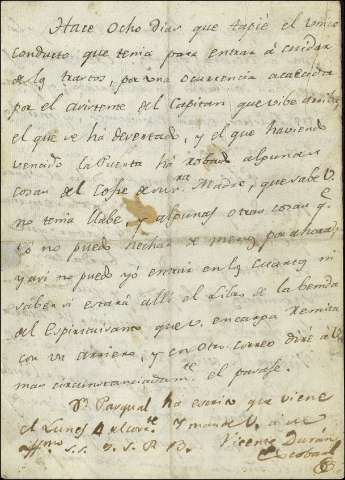 Hace Ocho dias que tapié el unico
conducto que tenia para entrar á cuidar
de los trastos, por una ocurrencia acaecida
por el asistente del Capitan que vibe arriba,
el que se ha desertado, y el que haviendo
la Puerta ha robado algunas
cosas del Cofre de Madre, que sabe V.
no tenia llabe, y algunas otras cosas q.e
yo no puedo hechar de menos por ahora;
y asi no puedo yó entrar en los Cuartos ni
saber si estará alli el Libro de la
del Espiritusanto que V. encarga remita
con un arriero, y en otro correo diré á V.
mas circunstanciadam.te el pasage.
D.n Pasqual ha escrito que viene
el Lunes 4 del corr.te y mande V. a su
aff.mo S. S. Q. S. M. B. Vicente Durán
Escobar